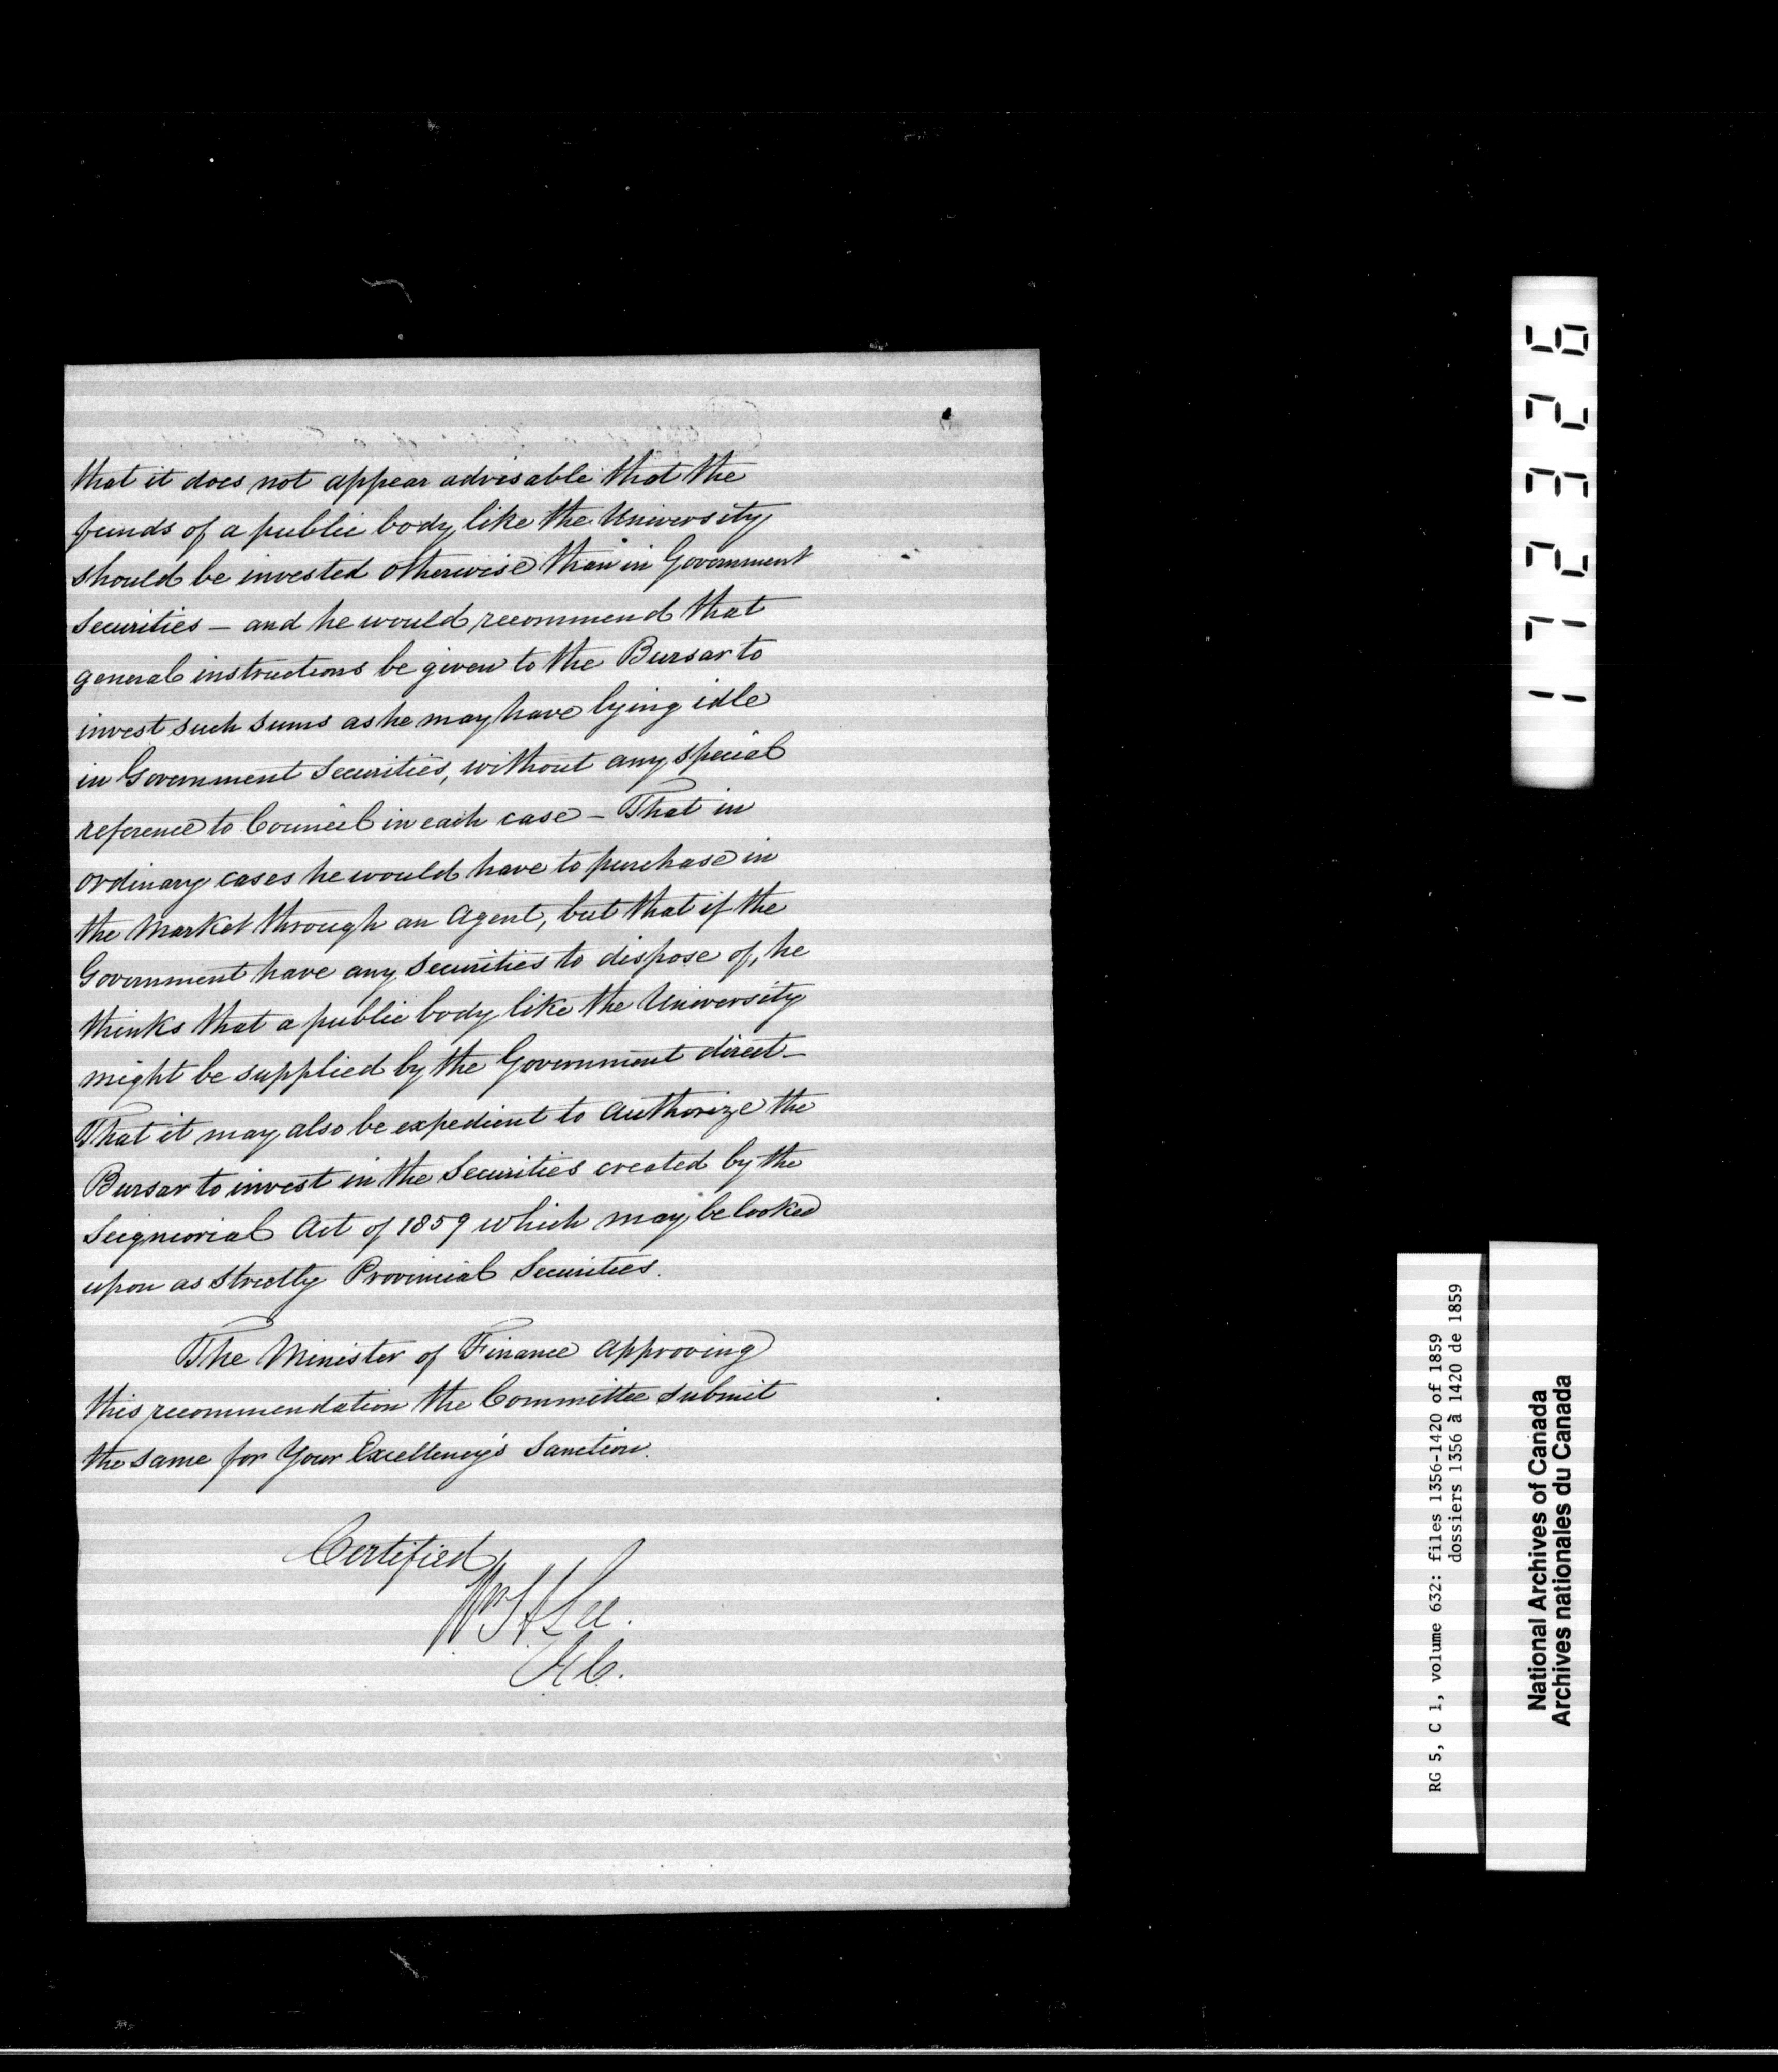 that it does not appear advisable that the
funds of a public body like the University
should be invested otherwise than in Government
Securities – and he would recommend that
general instructions be given to the Bursar to
invest such sums as he may have lying idle
in Government Securities, without any special
reference to Council in each case – That in
ordinary cases he would have to purchase in
the Market through an Agent, but that if the
Government have any Securities to dispose of, he
thinks that a public body like the University
might be supplied by the Government direct –
That it may also be expedient to authorize the
Bursar to invest in the Securities created by the
Seigneorial Act of 1859 which may be looked
upon as strictly Provincial Securities.
The Minister of Finance approving
this recommendation the Committee submit
the same for Your Excellency's Sanction.
Certified
Wm H Lee.
172326
RG 5, C 1, volume 632: files 1356-1420 of 1859
dossiers 1356 à 1420 de 1859
National Archives of Canada
Archives nationales du Canada